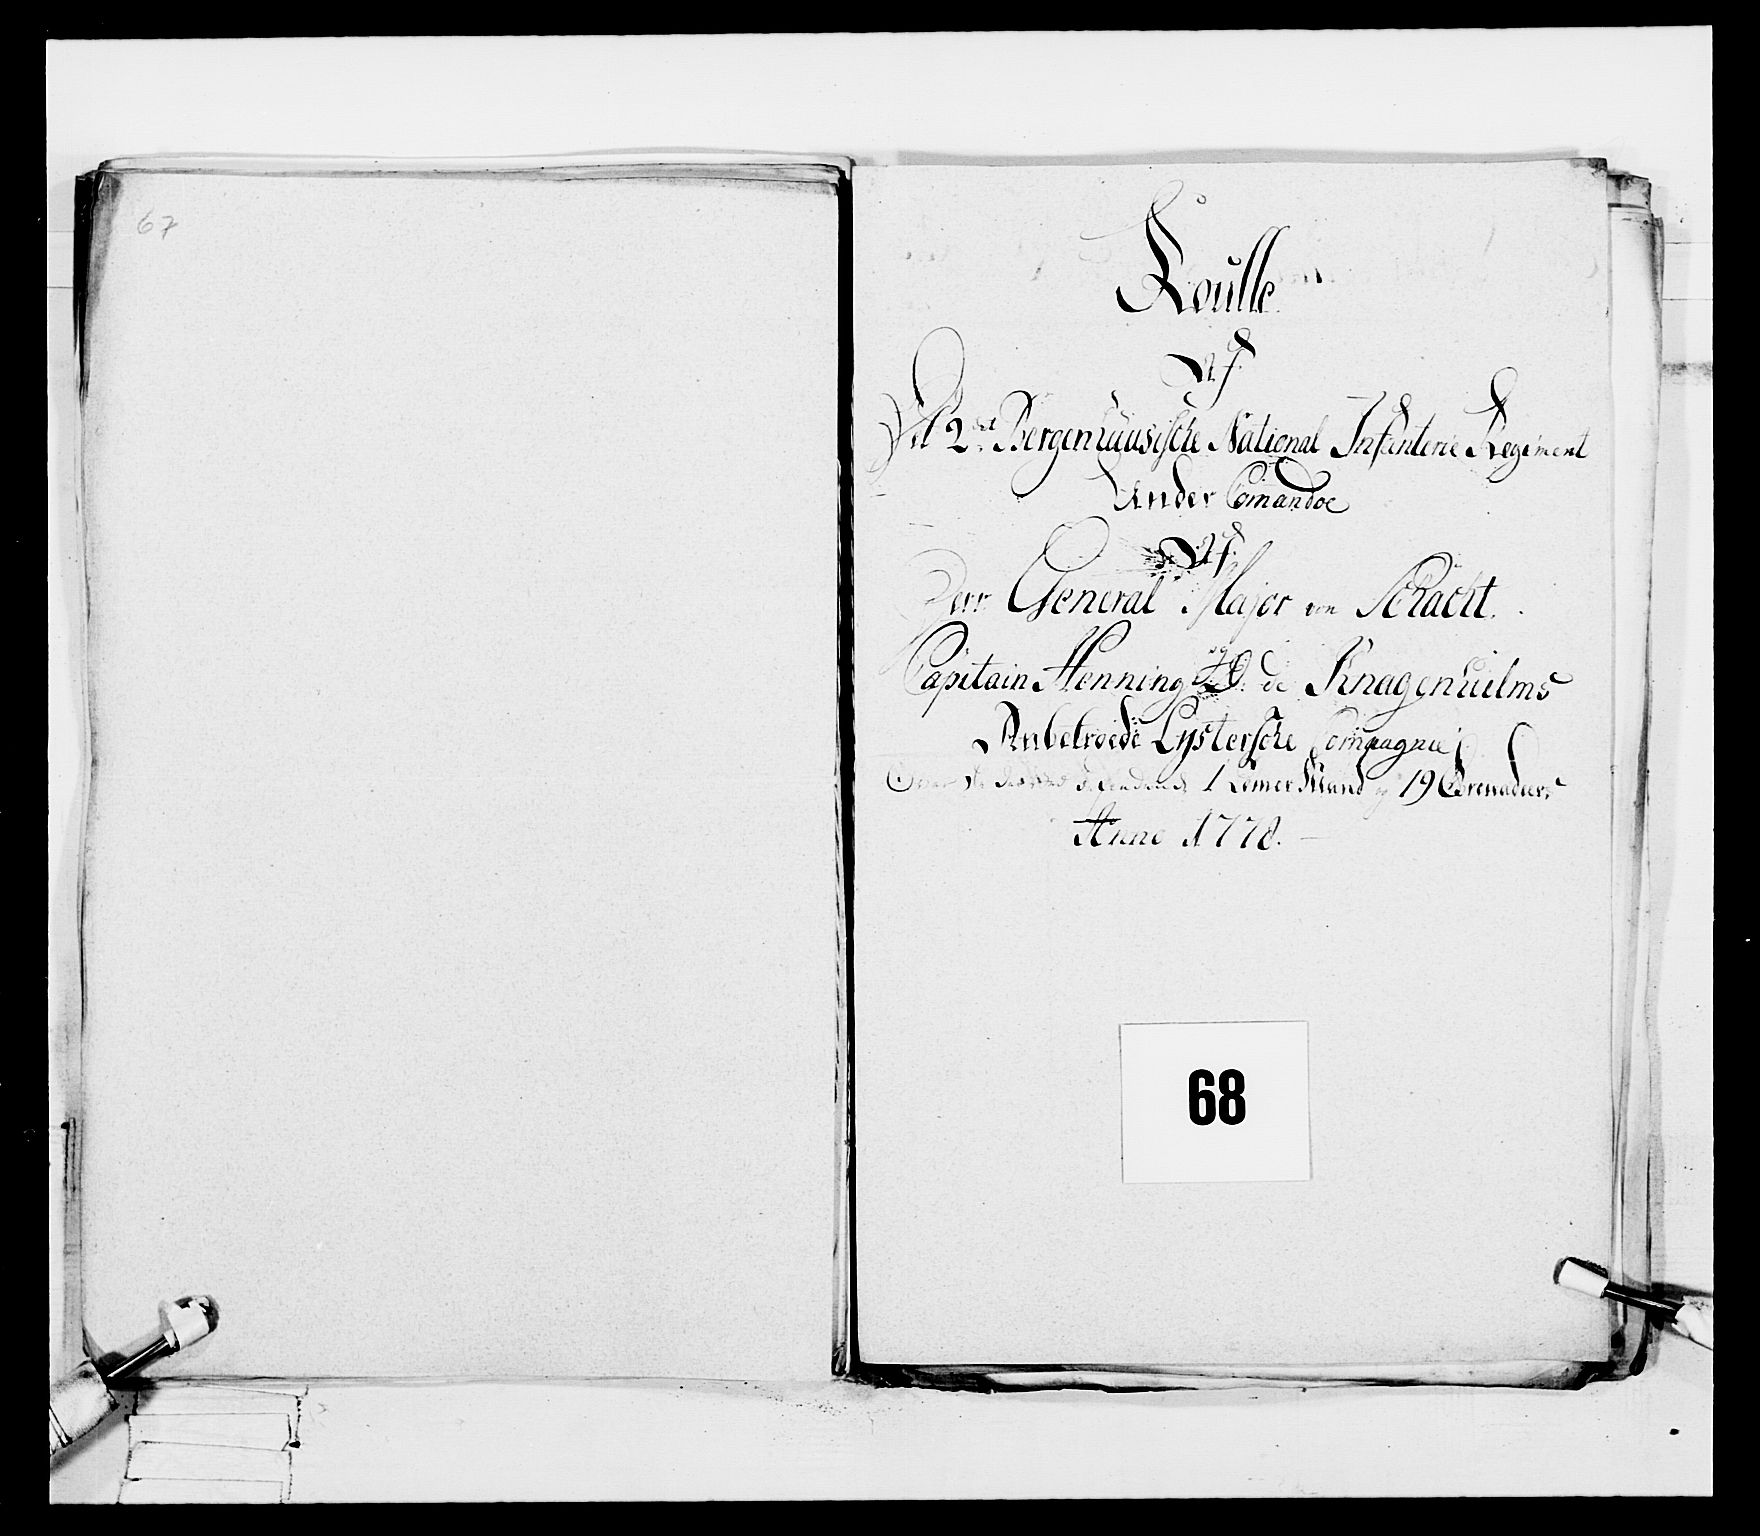 67
Roulle
Af
Det 2det Bergenhuusische National Infanterie Regiment
Under Comandoe
Af
Herr General Major von Schacht.
Capitain Henning D: de Knagenhielms
Anbetroede Lystersche Compagnie
1 Tømer Mand og 19 Grenadeers
Anno 1778.
68